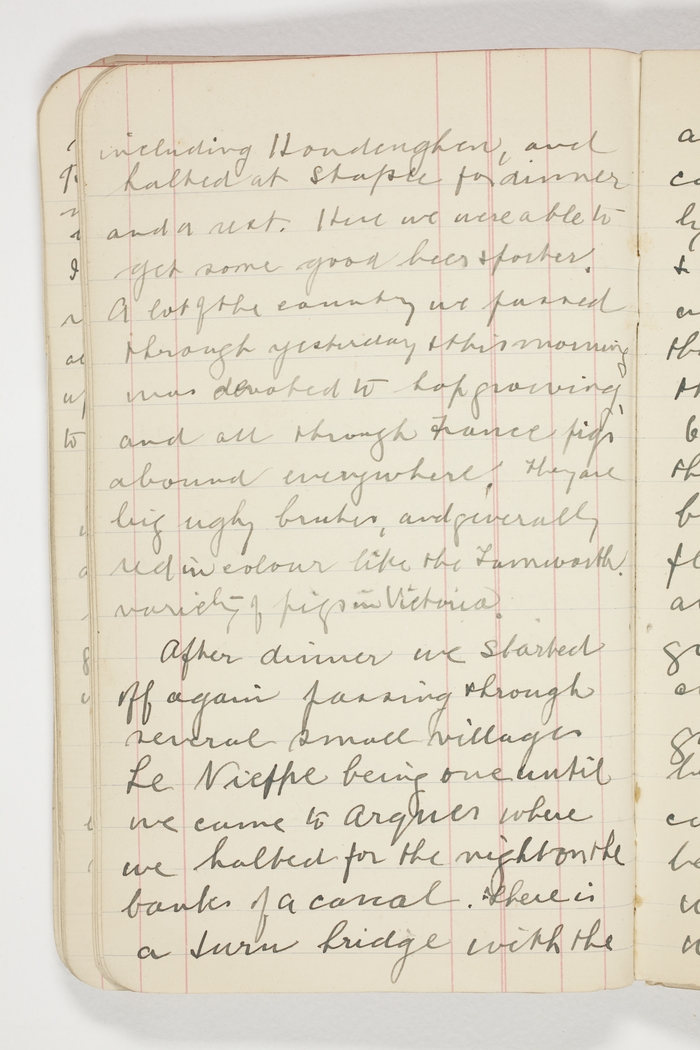 including Hondenghen, and
halted at Staple for dinner
and a rest. Here we were able to
get some good beer & porter.
A lot of the country we passed
through yesterday & this morning
was devoted to hop growing,
and all through France pigs
abound everywhere. They are
big ugly brutes, and generally
red in colour like the Tamworth
variety of pigs in Victoria.
After dinner we started
off again passing through
several small villages
Le Nieppe being one until
we came to Arques where
we halted for the night on the
banks of a canal. There is
a turn bridge with the